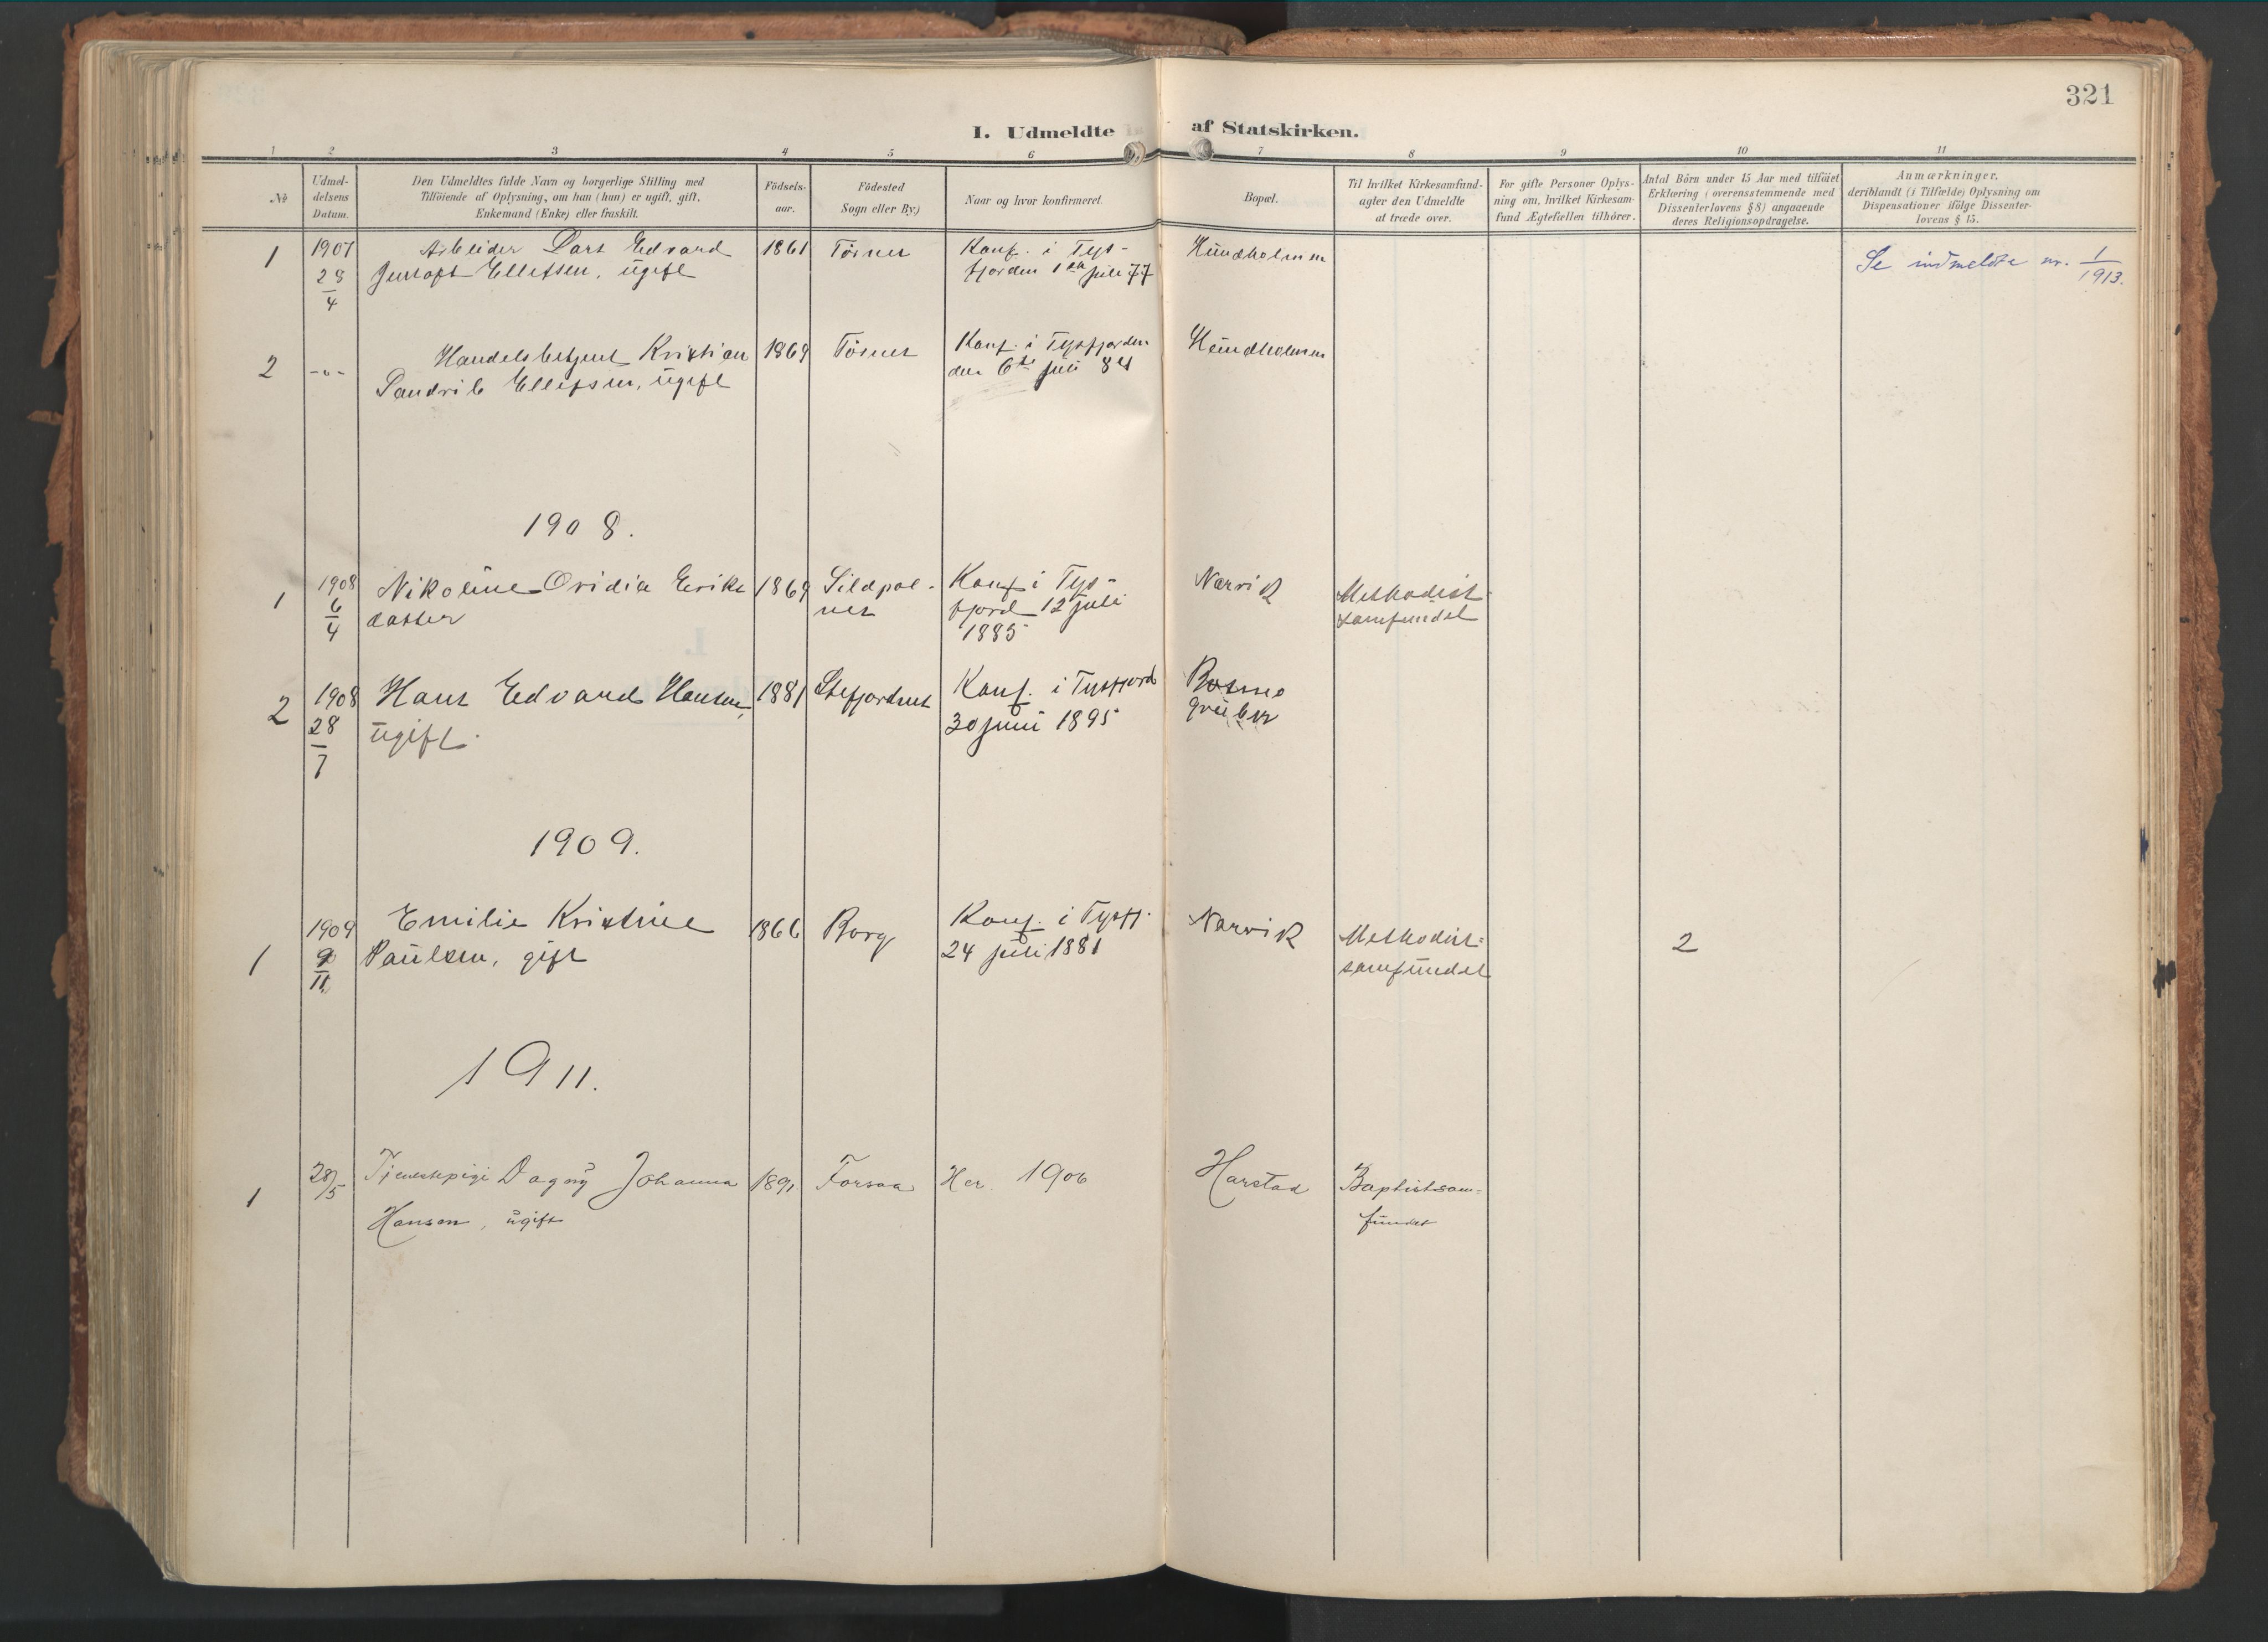 321
I. Udmeldte af Statskirken.
1 2 3 4 5 6 7 8 9 10 11
№
Udmel-
delsens
Datum.
Den Udmeldtes fulde Navn og borgerlige Stilling med
Tilföiende af Oplysning, om han (hun) er ugift, gift,
Enkemand (Enke) eller fraskilt.
Födsels-
aar.
Födested
Sogn eller By.)
Naar og hvor konfirmeret.
Bopæl.
Til hvilket Kirkesamfund-
agter den Udmeldte
at træde over.
For gifte Personer Oplys-
ning om, hvilket Kirkesam-
fund Ægtefællen tilhörer.
Antal Börn under 15 Aar med tilföiet
Erklæring (overensstemmende med
Dissenterlovens § 8) angaaende
deres Religionsopdragelse.
Anmærkninger,
deriblandt (i Tilfælde) Oplysning om
Dispensationer ifölge Dissenter-
lovens § 15.
1
1907
28
4
Arbeider Lars Edvard
Ellefsen, ugift
1861
Tösnes
Konf. i Tys-
fjorden 1ste juli 77
Hundholmen
Se indmeldte nr. 1
1913.
2
-"-
Handelsbetjent Kristian
Ellefsen, ugift
1869
Tösnes
Konf. i Tysfjorden
den 6te juli 84
Hundholmen
1908.
1
1908
6
4
Nikoline Ovidia Eriks
datter
1869
Sildpol-
nes
Konf i Tys-
fjord 12 juli
1885
Narvik
Methodist-
samfundet
2
1908
28
7
Hans Edvard Hansen,
ugift.
1881
Stefjordnes
Konf. i Tysfjord
30 juni 1895
Bosmo
gruber
1909.
1
1909
9
11
Emilie Kristine
Paulsen, gift
1866
Borg
Konf. i Tysfj.
24 juli 1881
Narvik
Methodist=
samfundet
2
1911.
1
28/5
Tjenestepige Dagny Johanna
Hansen, ugift
1891
Forsaa
Her. 1906
Harstad
Baptistsam=
fundet